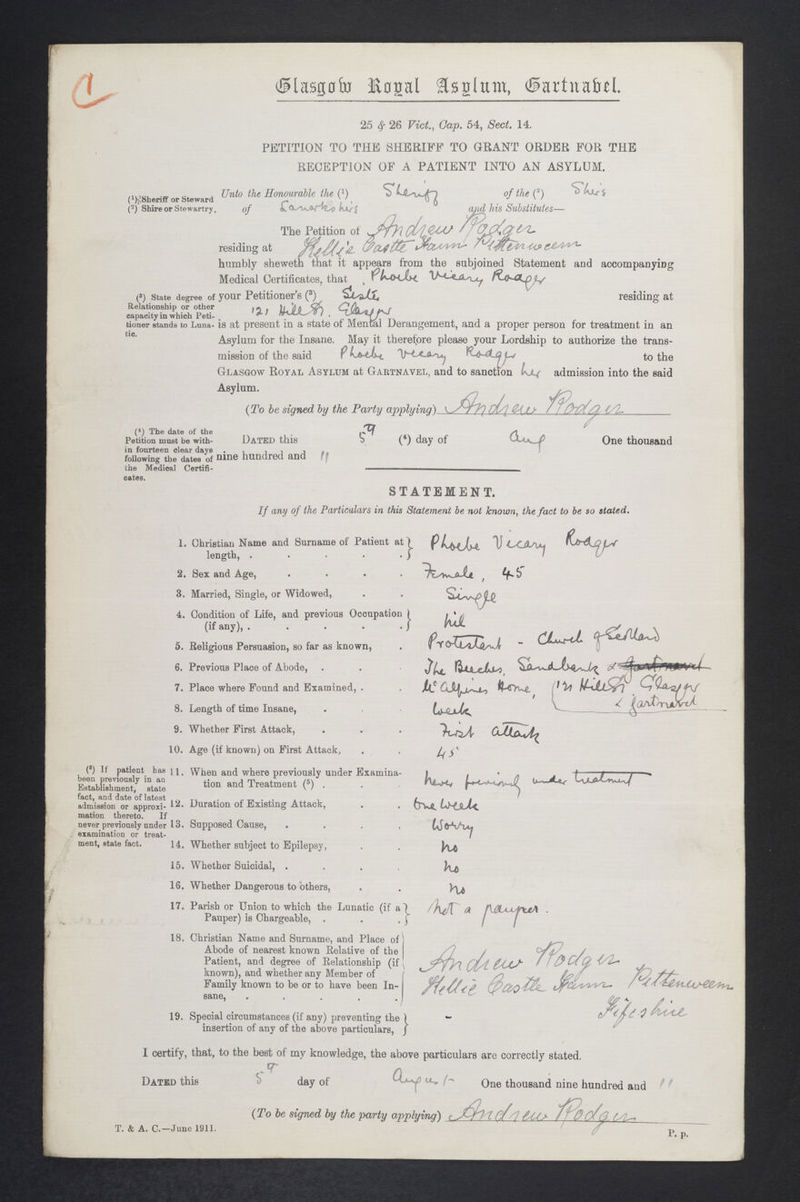 Glasgow Royal Asylum, Gartnavel.
25 & 26 Vict., Cap. 54, Sect. 14.
PETITION TO THE SHERIFF TO GRANT ORDER FOR THE
RECEPTION OF A PATIENT INTO AN ASYLUM.
(1) Sheriff or Steward
(2) Shire or Stewartry.
Unto the Honourable the (1) Sheriff of the (2) Shire
of Lanarkshire and his Substitutes—
The Petition of Andrew Rodger
residing at Kellie Castle Farm Pittenweem
humbly sheweth that it appears from the subjoined Statement and accompanying
Medical Certificates, that Phoebe Vicary Rodger
(3) State degree of Relationship or other capacity in which Petitioner stands to Lunatic.
your Petitioner's (3) Sister residing at
121 Hill St. Glasgow
is at present in a state of Mental Derangement, and a proper person for treatment in an
Asylum for the Insane. May it therefore please your Lordship to authorize the trans-
mission of the said Phoebe Vicary Rodger to the
GLASGOW ROYAL ASYLUM at GARTNAVEL, and to sanction her admission into the said
Asylum.
(To be signed by the Party applying) Andrew Rodger
(4) The date of the Petition must be within fourteen clear days following the dates of the Medical Certificates.
DATED this 5th (4) day of Aug One thousand
nine hundred and 11
STATEMENT.
If any of the Particulars in this Statement be not known, the fact to be so stated.
1. Christian Name and Surname of Patient at length, . Phoebe Vicary Rodger
2. Sex and Age, Female, 45
3. Married, Single, or Widowed, Single
4. Condition of Life, and previous Occupation (if any), . nil
5. Religious Persuasion, so far as known, Protestant - Church of Scotland
6. Previous Place of Abode, . The Beeches, Sandbank & Gartnavel
7. Place where Found and Examined, . McAlpines Home, 121 Hill St. Glasgow & Gartnavel
8. Length of time Insane, Week
9. Whether First Attack, First attack
10. Age (if known) on First Attack, 45
(5) If patient has been previously in an Establishment, state fact, and date of latest admission or approximation thereto. If never previously under examination or treatment, state fact.
11. When and where previously under Examination and Treatment (5) . never previously under treatment
12. Duration of Existing Attack, One week
13. Supposed Cause, Worry
14. Whether subject to Epilepsy, no
15. Whether Suicidal, . no
16. Whether Dangerous to others, no
17. Parish or Union to which the Lunatic (if a Pauper) is Chargeable, . Not a pauper.
18. Christian Name and Surname, and Place of
Abode of nearest known Relative of the
Patient, and degree of Relationship (if
known), and whether any Member of
Family known to be or to have been In-
sane,
Andrew Rodger
Kellie Castle Farm Pittenweem
Fifeshire
19. Special circumstances (if any) preventing the insertion of any of the above particulars, -
I certify, that, to the best of my knowledge, the above particulars are correctly stated.
DATED this 5th day of August One thousand nine hundred and 11
(To be signed by the party applying) Andrew Rodger
T. & A. C.—June 1911.
P. p.